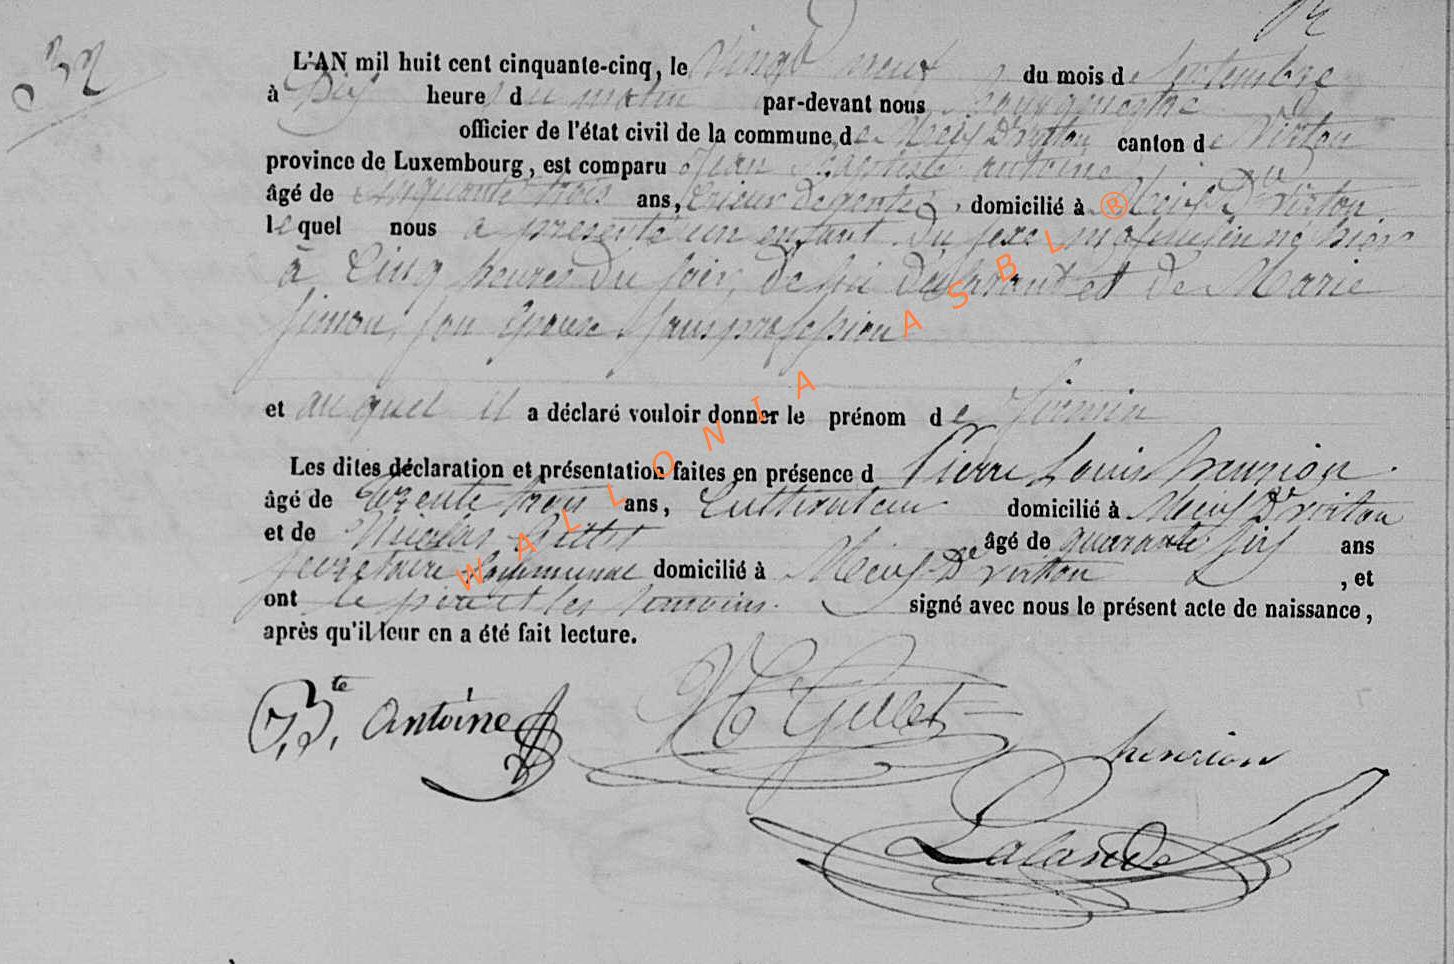 32
L'AN mil huit cent cinquante-cinq, le Vingt neuf du mois de Septembre
à Dix heure s du matin par-devant nous Bourguemestre
officier de l'état civil de la commune de Meix Dt virton canton de Virton
province de Luxembourg, est comparu Jean Baptiste antoine
âgé de cinquante trois ans, domicilié à Meix Dt virton.
lequel nous a présenté un enfant du sexe masculin né hier
à Cinq heures du soir, de lui déclarant et de Marie
Simon, son Epouse sans profession
et auquel il a déclaré vouloir donner le prénom de Firmin
Les dites déclaration et présentation faites en présence d Pierre Louis henrion
âgé de trente trois ans, Cultivateur domicilié à Meix Dt virton
et de Nicolas Gillet âgé de quarante six ans
secrétaire Communal domicilié à Meix Dt virton , et
ont le père et les témoins. signé avec nous le présent acte de naissance,
après qu'il leur en a été fait lecture.
J.Bte. Antoine
N Gillet
henrion
Lalande
WALLONIA ASBL ®